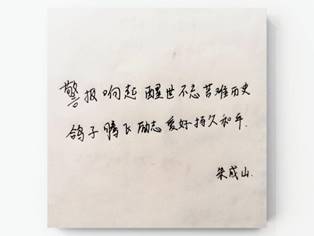 警报响起 醒世不忘苦难历史
鸽子腾飞 励志爱好持久和平.
朱成山.